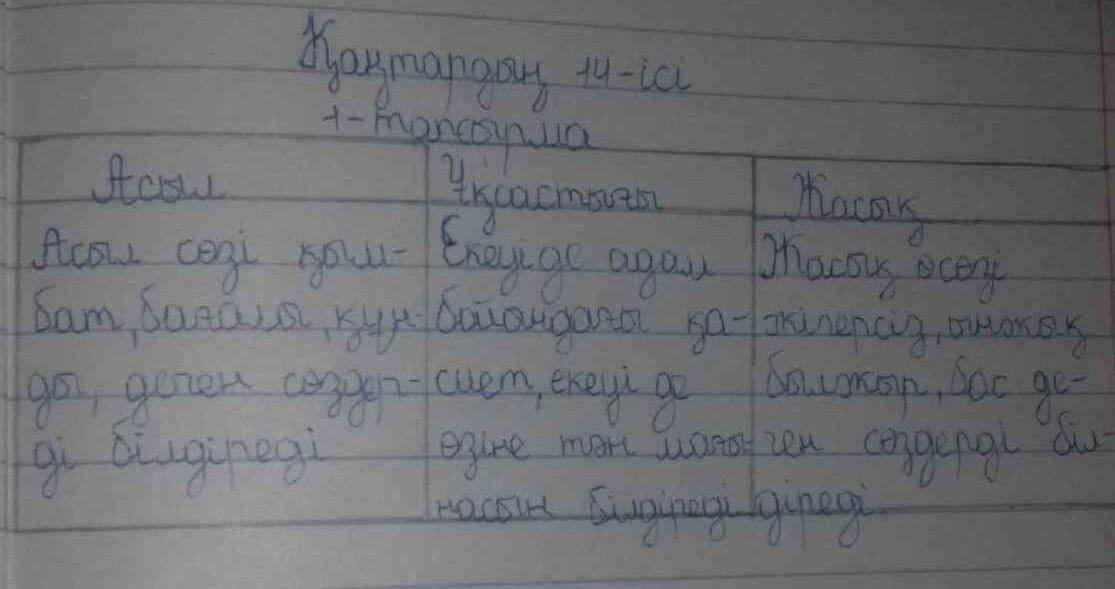 Қаңтардың 14-ісі
1-тапсырма
Асыл
Ұқсастығы
Жасық
Асыл сөзі қым-
бат, бағалы, құн-
ды, деген сөздер-
ді білдіреді
Екеуі де адам
бойындағы қа-
сиет, екеуі де
өзіне тән мағы-
насын білдіреді
Жасық өсөзі
жігерсіз, ынжық
былжыр, бос де-
ген сөздерді біл-
діреді